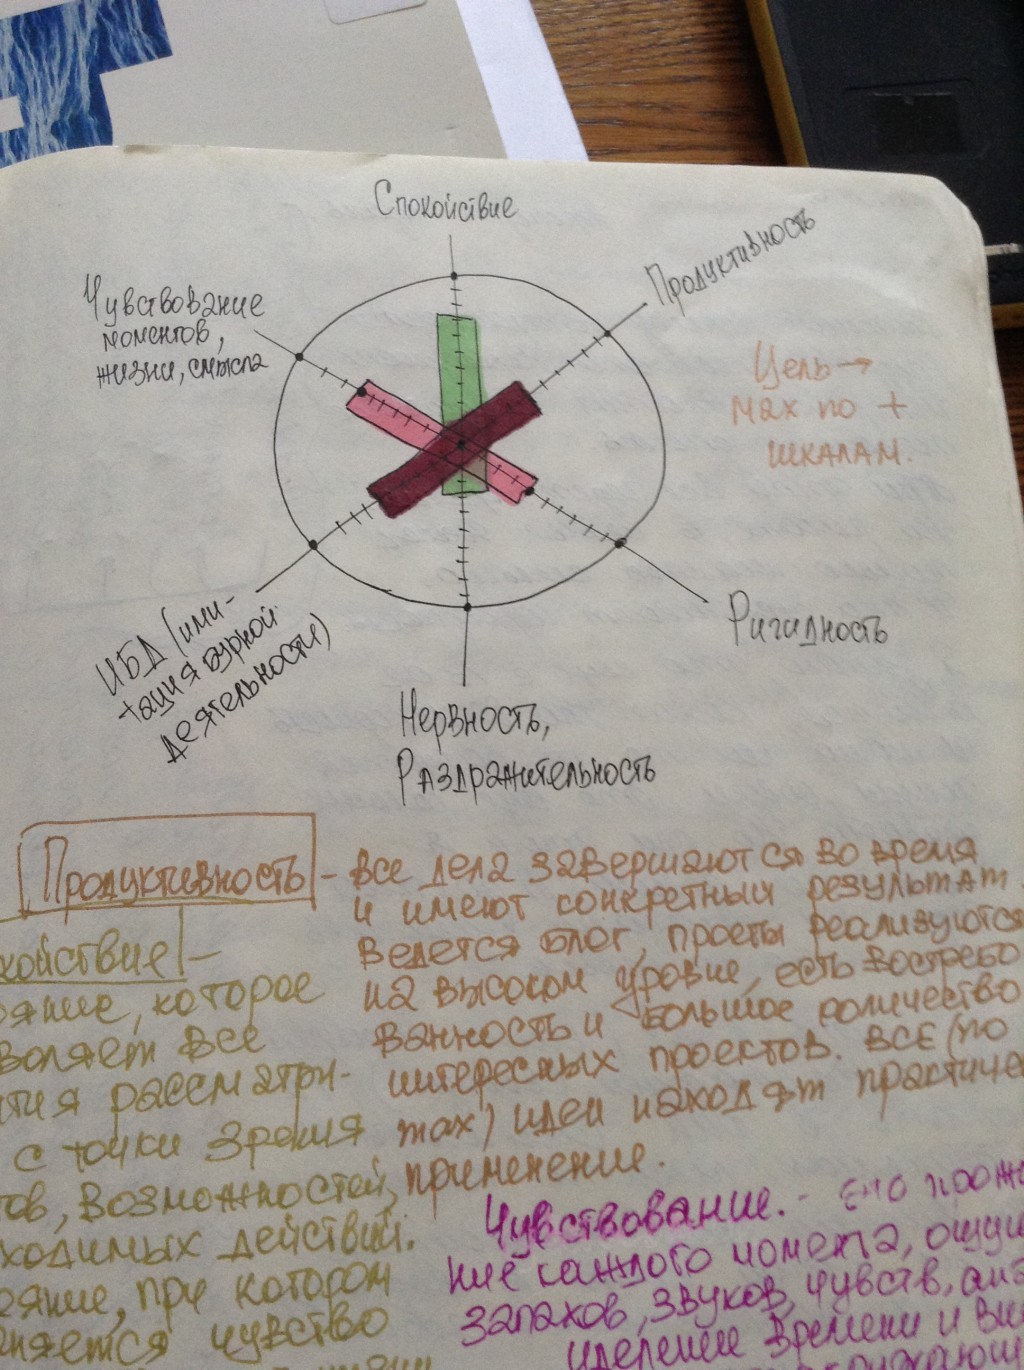 Спокойствие
Продуктивность
Чувствование
моментов,
жизни, смысла
Цель →
мах по +
шкалам.
ИБД (ими-
тация бурной
деятельности)
Ригидность
Нервность,
Раздражительность
Продуктивность - все дела завершаются во время
и имеют конкретный результат.
Ведется блог, проеты реализуются
на высоком уровне, есть востребо
ванность и большое количество
интересных проектов. ВСЕ (по
мах) идеи находят практиче
применение.
койствие -
ояние, которое
воляет все
тия рассматри-
с точки зрения
тов, возможностей,
ходимых действий.
ояние, при котором
няется чувство
Чувствование. - это прожи
ние каждого момета, ощущ
запахов, звуков, чувств,
времени и